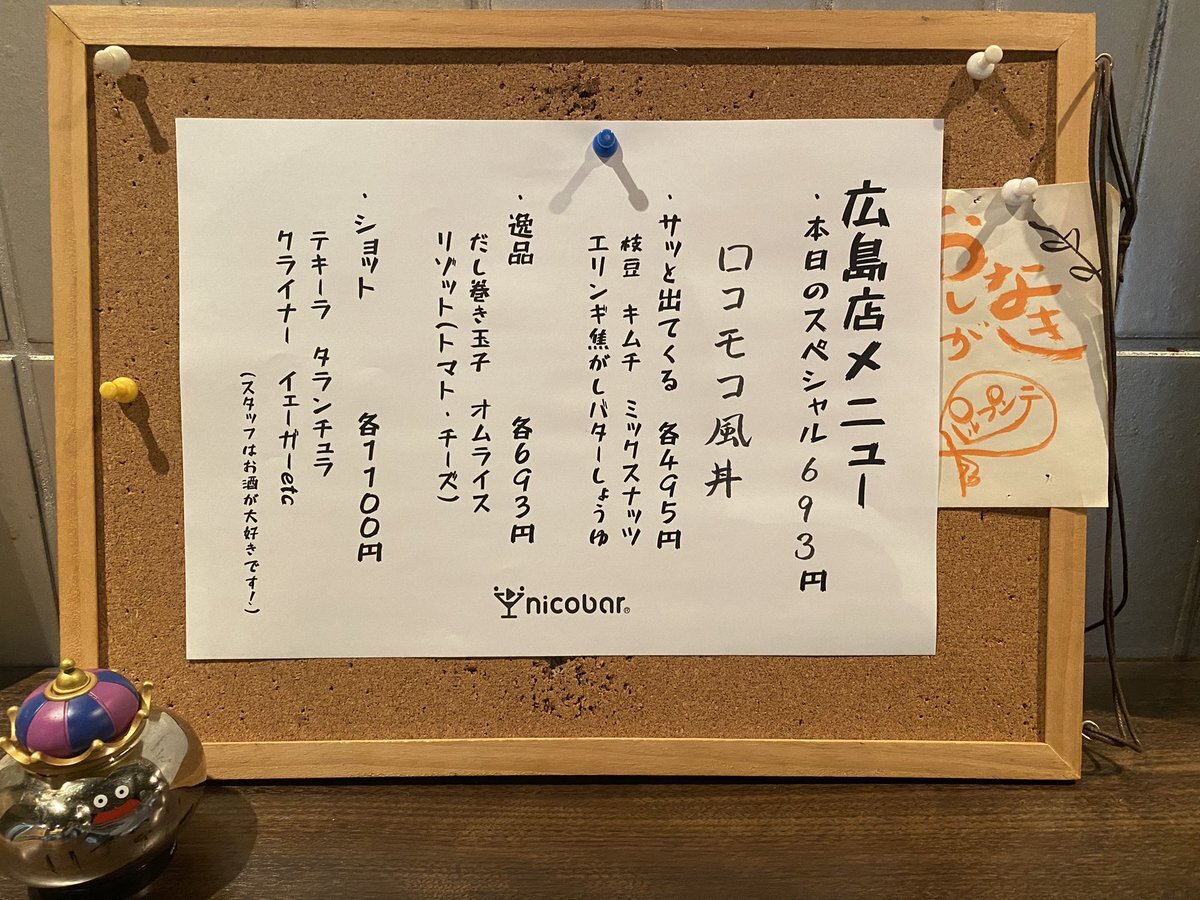 広島店メニュー
・本日のスペシャル693円
ロコモコ風丼
・サッと出てくる 各495円
枝豆 キムチ ミックスナッツ
エリンギ焦がしバターしょうゆ
・逸品 各693円
だし巻き玉子 オムライス
リゾット(トマト・チーズ)
・ショット 各1100円
テキーラ タランチュラ
クライナー イエーガーetc
(スタッフはお酒が大好きです！)
nicobar®
なき
しが
パルプンテ